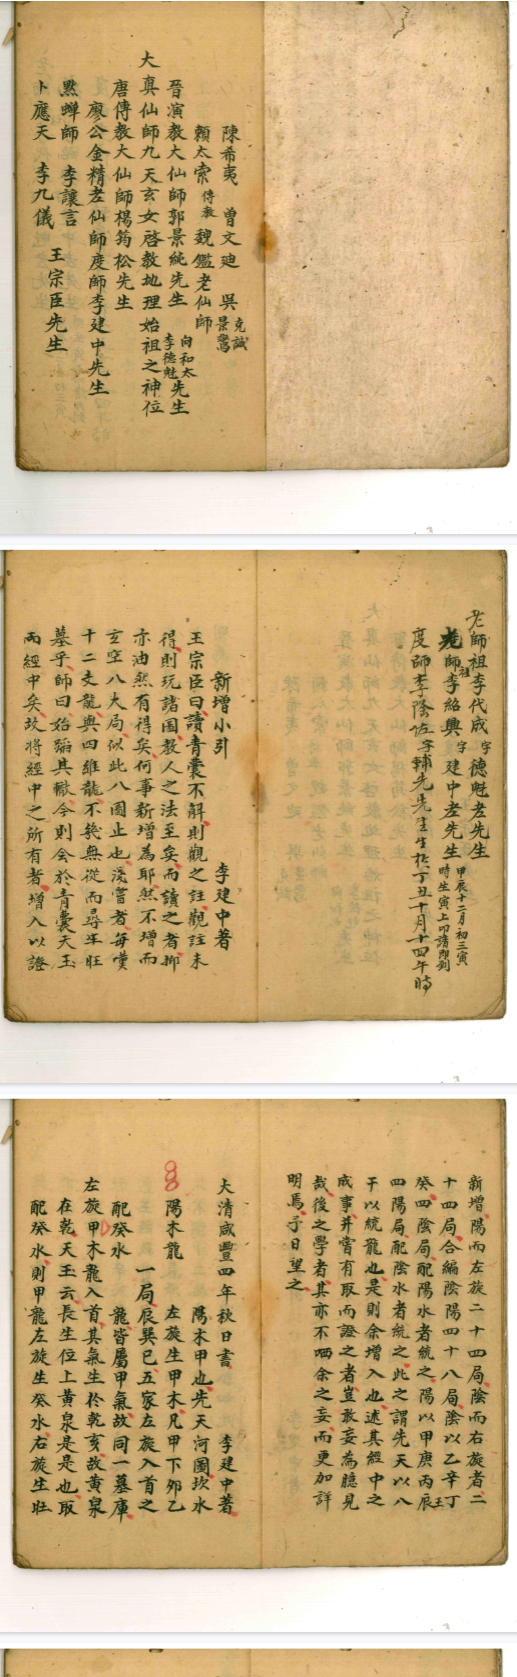 陳希夷 曾文廸 吳克誠景鸞
賴太索傳教魏鑑老仙師
晉演教大仙師郭景純先生 向和太李德魁先生
大真仙師九天玄女啓教地理始祖之神位
唐傳教大仙師楊筠松先生
廖公金精老仙師度師李建中先生
黙蟬師 李讓言
卜應天 李九儀 王宗臣先生
老師祖李代成字德魁老先生
老師祖李紹興字建中老先生 甲辰十二月初三寅時生寅上叩請即到
度師李陰佐字輔先先生生於丁丑十月十四午時
新增小引 李建中著
王宗臣曰讀青囊不解則觀之註觀註未
得則玩諸圖教人之法至矣而讀之者抑
亦油然有得矣何事新增為耶然不增而
玄空八大局似此八圖止也淺嘗者每嘆
十二支龍與四維龍不幾無從而尋生旺
墓乎師曰始蹈其轍今則會於青囊天玉
兩經中矣故將經中之所有者增入以證
新增陽而左旋二十四局陰而右旋者二
十四局合編陰陽四十八局陰以乙辛丁
癸四陰局配陽水者統之陽以甲庚丙壬
四陽局配陰水者統之此之謂先天以八
干以統龍也是則余增入也述其經中之
成事并嘗有取而證之者豈敢妄為臆見
哉後之學者其亦不哂余之妄而更加詳
明焉予日望之
大清咸豐四年秋日書 李建中著
陽木甲也先天河圖坎水
陽木龍 左旋生甲木凡甲下卯乙
一局辰巽巳五家左旋入首之
配癸水 龍皆屬甲氣故同一墓庫
左旋甲木龍入首其氣生於乾亥故黃泉
在乾天玉云長生位上黃泉是是也取
配癸水則甲龍左旋生癸水右旋生旺